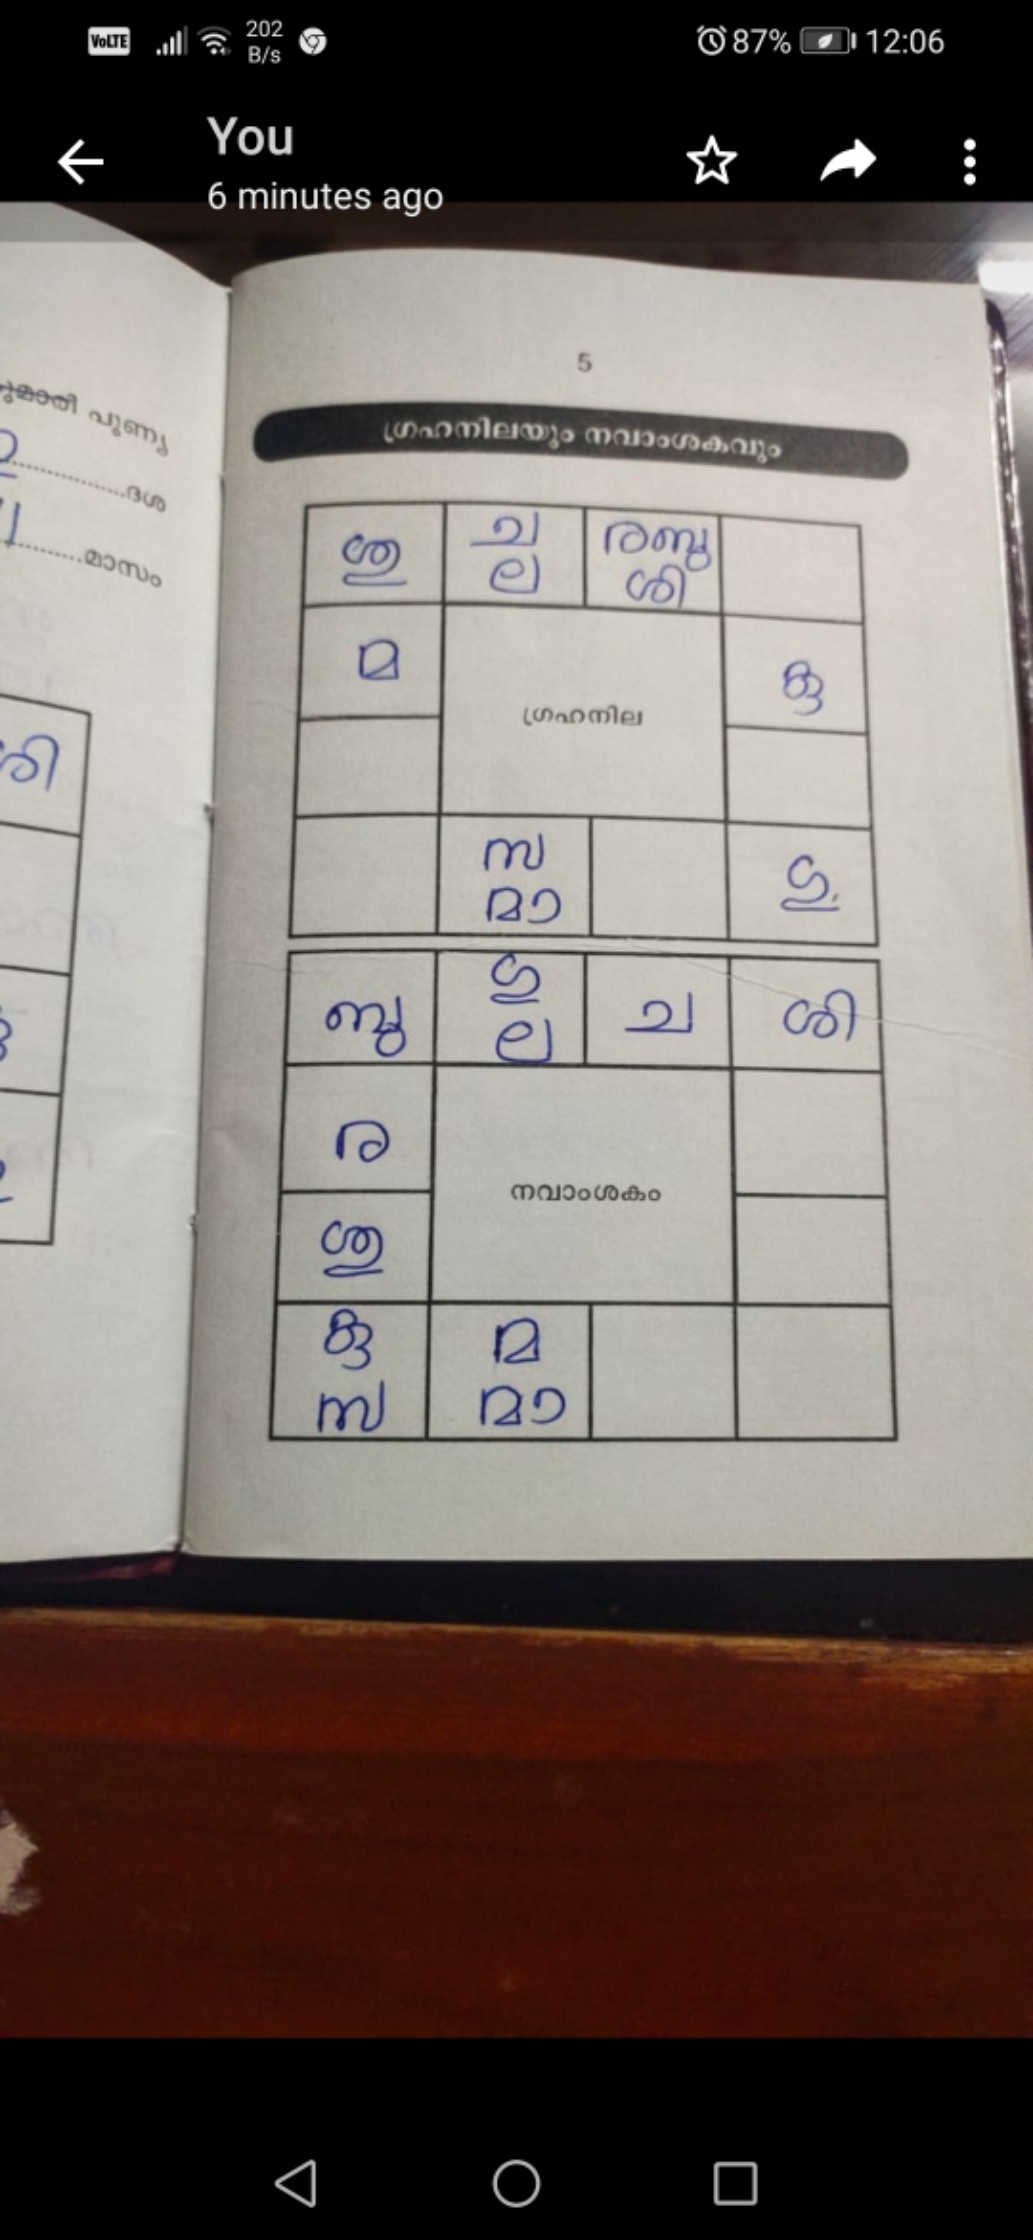 VoLTE 202 B/s 87% 12:06
You
6 minutes ago
പുണ്യ
ദശ
മാസം
ശി
5
ഗ്രഹനിലയും നവാംശകവും
ശു ച രബു
ല ശി
മ കു
ഗ്രഹനില
സ ഗു
മാ
ബു ഗു ച ശി
ല
ര
നവാംശകം
ശു
കു മ
സ മാ